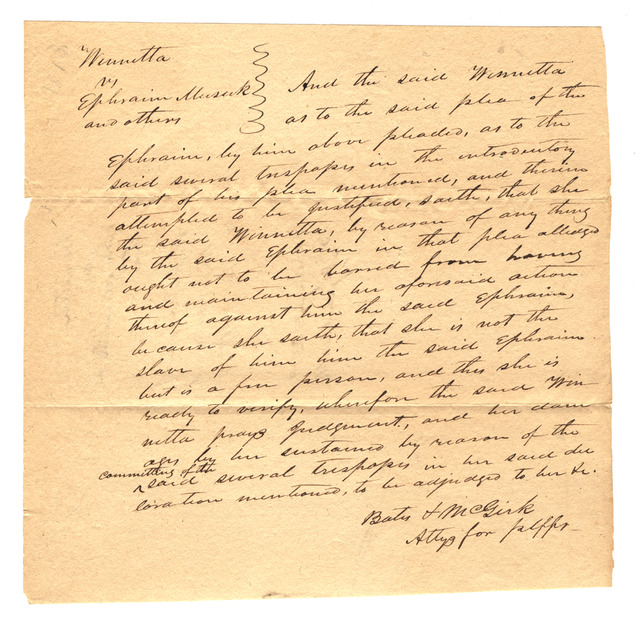 Winnetta
vs
Ephraim Musick
and others
And the said Winnetta
as to the said plea of the
Ephraim, by him above pleaded, as to the
said several trespasses in the introductory
part of his plea mentioned, and therein
attempted to be justified, saith, that she
the said Winnetta, by reason of any thing
by the said Ephraim in that plea alledged
ought not to be barred from having
and maintaining her aforesaid action
thereof against him the said Ephraim,
because she saith, that she is not the
slave of him him the said Ephraim
but is a free person, and this she is
ready to verify, wherefore the said Win
netta prays Judgment, and her dam
ages by her sustained by reason of the
committing of the
said several trespasses in her said dec
laration mentioned, to be adjudged to her &c.
Bates & McGirk
Attys for plffs